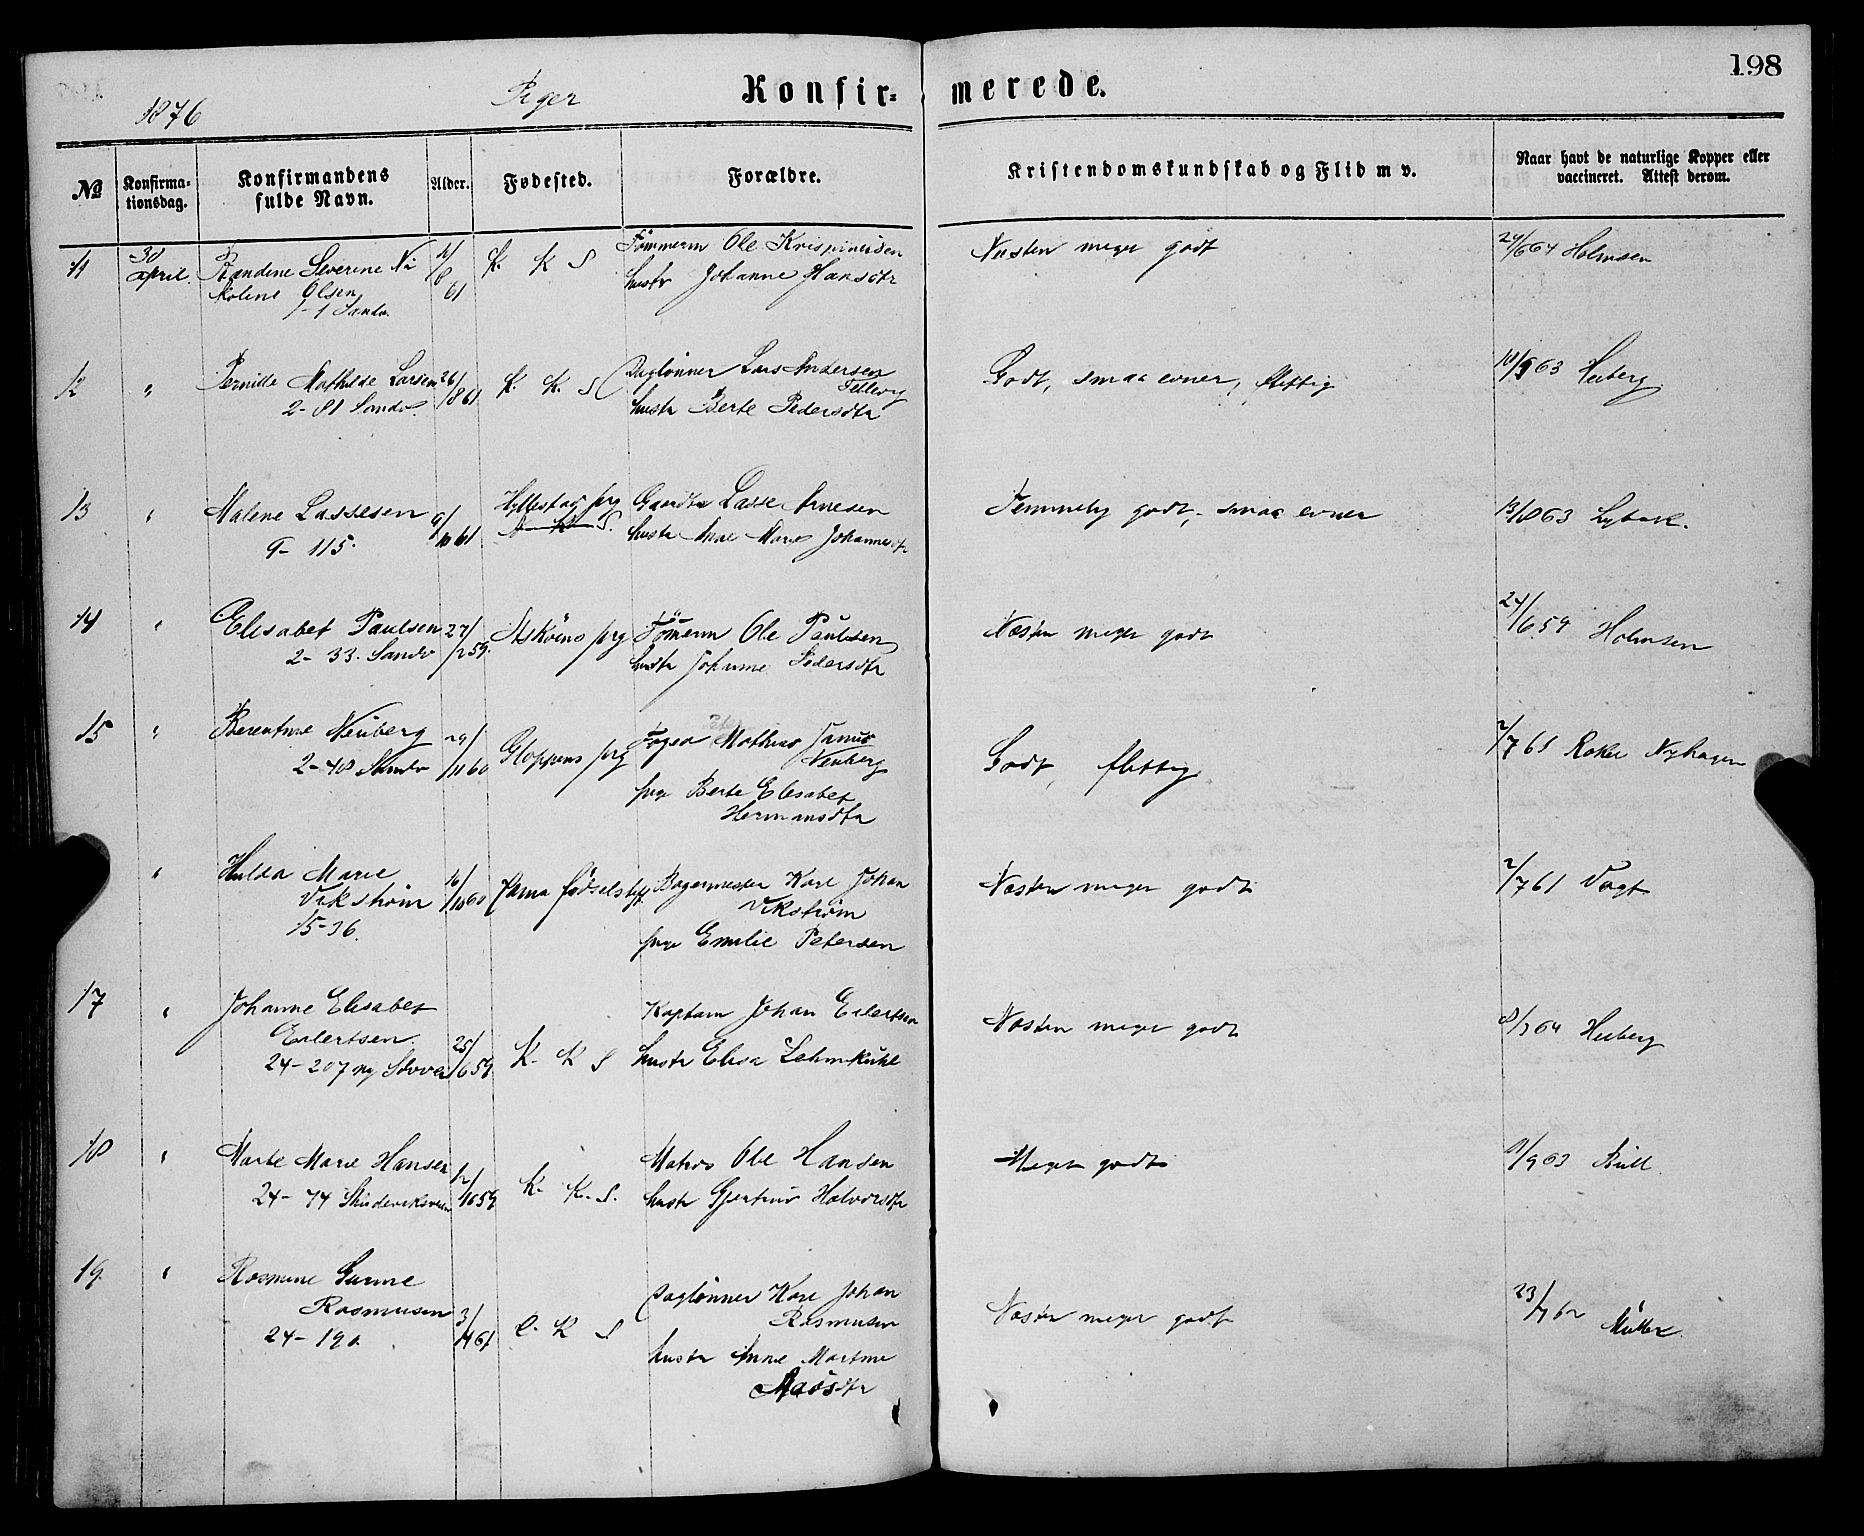 198
1876 Piger Konfir= merede.
№ Konfirma-tionsdag. Konfirmandens fulde Navn. Alder. Fødested. Forældre. Kristendomskundskab og Flid m v. Naar havt de naturlige Kopper eller vaccineret. Attest derom.
11 30 April. Randine Severine Ni K. K S Tømmerm Ole Krispinusen Næsten meget godt 24/6 64 Holmsen
koline Olsen 61 hustr Johanne Hansdtr
1-1 Sandv.
12 " Pernille Mathilde Larsen 26/8 61 K. K. S Daglønner Lars Andersen Godt, smaa evner, flittig 63 Heiberg
2-81 Sandv. hustr Berte Pedersdtr
13 " Malene Lassesen 9/10 61 Hyllestad prg Gaardbr Lasse Arnesen Temmelig godt, smaa evner 13/8 63 Lybeck.
9-115. K. S. hustr Ane Marie Johannesdtr
14 " Elisabet Paulsen 27/2 59. Askøens prg Tømerm Ole Paulsen Næsten meget godt 24/6 59 Holmsen
2-33. Sandv hustr Johanne Pedersdtr
15 " Berentine Neuberg 29/11 60 Gloppens prg Foged Mathias Janus Godt, flittig 2/7 61 Nyhagen
2-40 Sandv Neuberg
pige Berte Elisabet
Hermansdtr
" Hulda Marie 16/10 60 fødselsst Bagermester Karl Johan Næsten meget godt 2/7 61 Vogt
Vikstrøm Vikstrøm
15-36. pige Emilie Petersen
17 " Johanne Elisabet Kaptein Johan Eilertsen Næsten meget godt 64 Heiberg
Eilertsen. 25/6 59 K. K S hustr Elisa Lehmkuhl
24-207 ny
18 " Marte Marie Hansen 12/10 59 K. K. S. Matros Ole Hansen Meget godt 9/9 63 Bull.
24-74 hustr Gjertrud Halvorsdtr
19. " Rasmine Gurine Daglønner Karl Johan Næsten meget godt 23/7 62 Müller.
Rasmusen 3/4 61 K S Rasmusen
24-190 hustr Anne Martine
Madsdtr